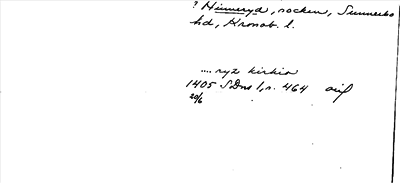 ? Hinneryd, socken, Sunnerbo
hd, Kronob. l.
.... ryz kirkio
1405 SDns 1, n. 464 avskr
20/6